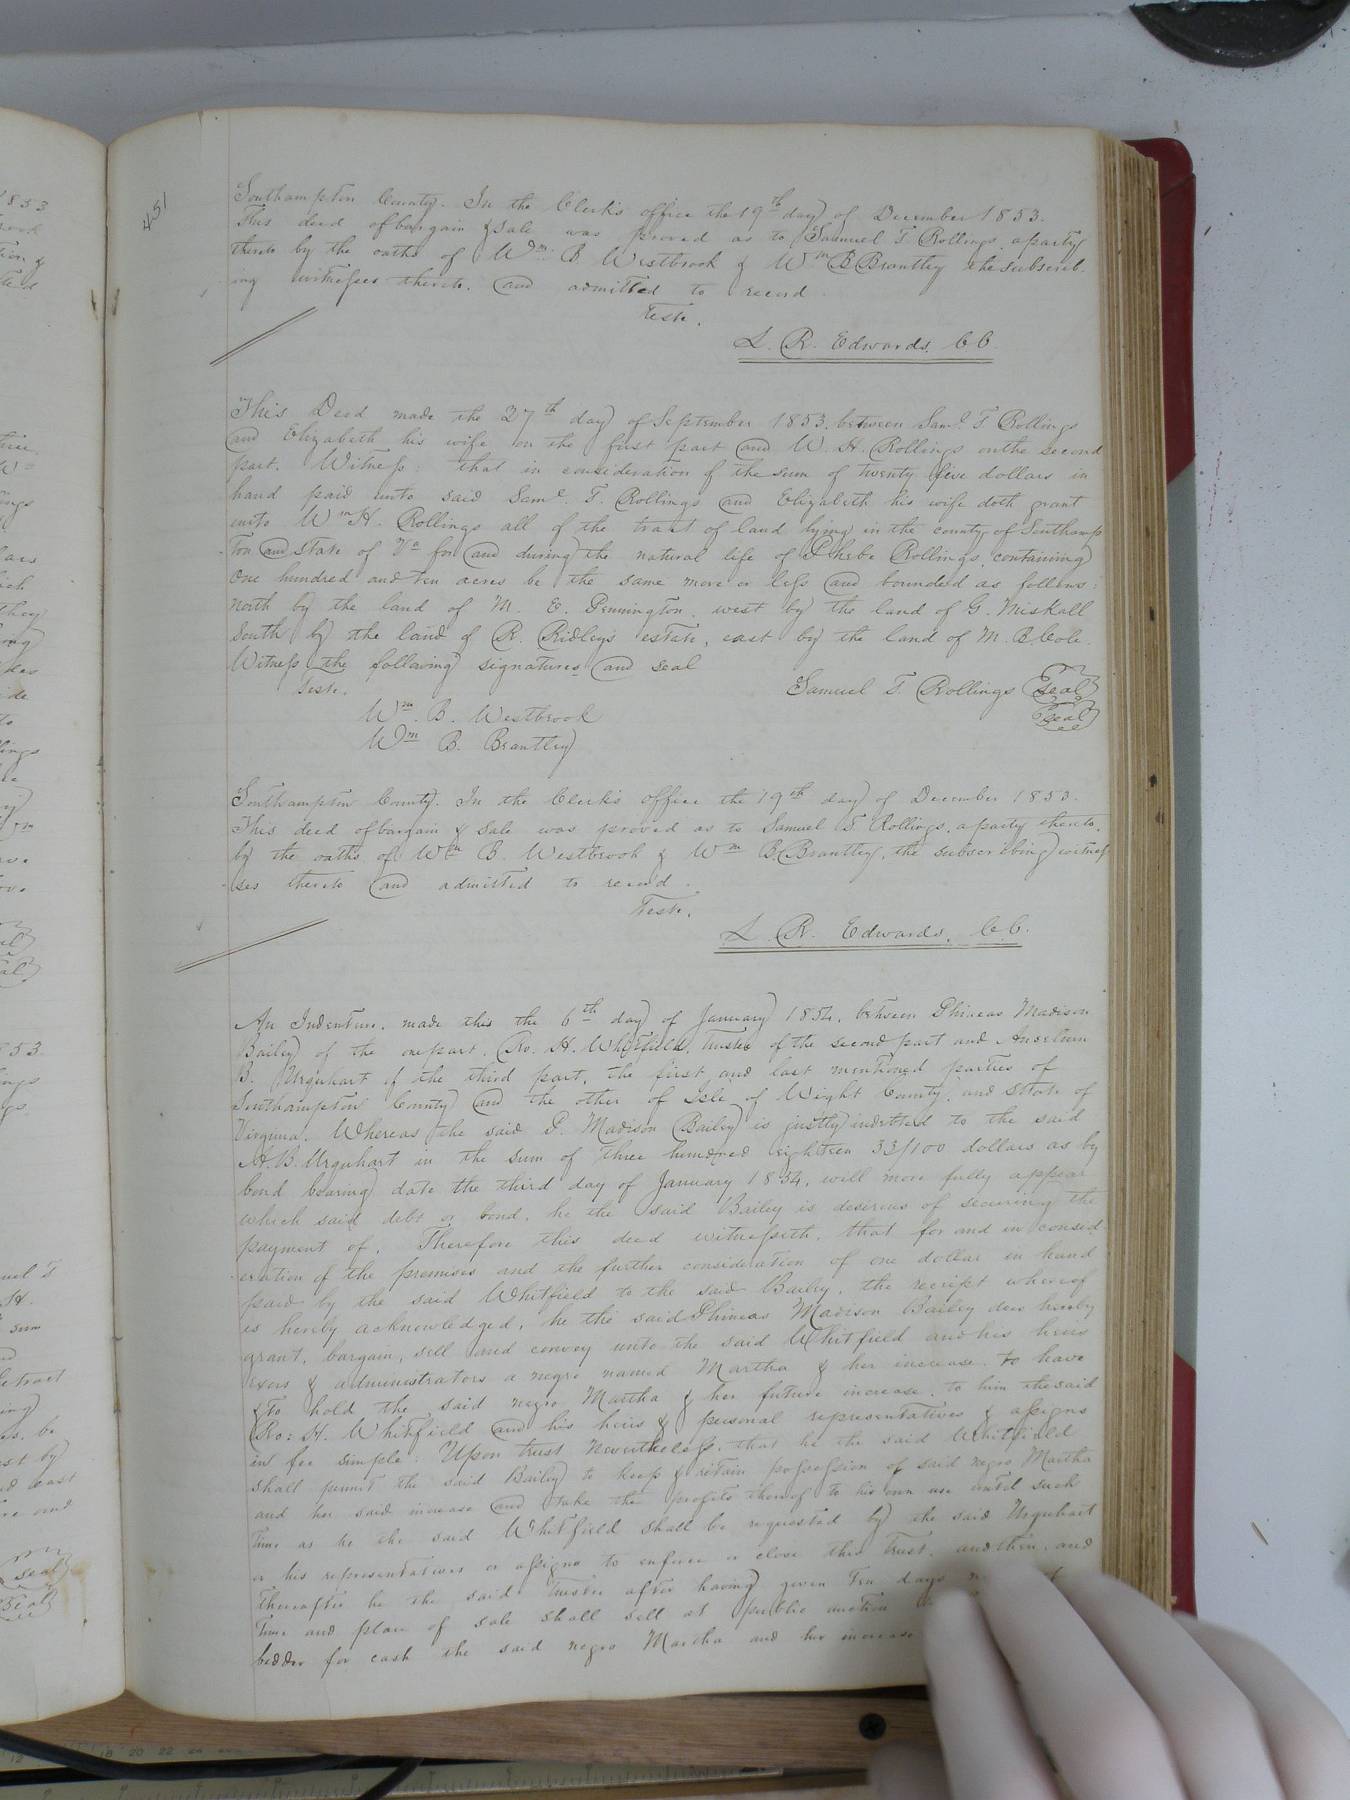 451
Southampton County. In the Clerk's office the 19th day of December 1853.
This deed of bargain & sale was proved as to Samuel T Rollings a party
thereto by the oaths of Wm. B Westbrook & Wm B Brantley the subscrib-
ing witnesses thereto. and admitted to record
Teste.
L. R. Edwards. C C.
This Deed made the 27th day of September 1853. between Saml. T Rollings
and Elizabeth his wife on the first part and W. H. Rollings on the second
part. Witness: that in consideration of the sum of twenty five dollars in
hand paid unto said Saml. T. Rollings and Elizabeth his wife doth grant
unto Wm H. Rollings all of the tract of land lying in the county of Southamp
ton and state of Va for and during the natural life of Phebe Rollings, containing
one hundred and ten acres be the same more or less and bounded as follows:
north by the land of M. E. Pennington. west by the land of G. Miskall
South by the land of R. Ridley's estate, east by the land of M. B. Cole.
Witness the following signatures and seal
Teste.
Samuel T. Rollings Seal
Wm. B. Westbrook
Seal
Wm B. Brantley
Southampton County. In the Clerk's office the 19th day of December 1853.
This deed of bargain & sale was proved as to Samuel T. Rollings, a party thereto,
by the oaths of Wm B. Westbrook & Wm B. Brantley, the subscribing witnes
ses thereto and admitted to record.
Teste.
L. R. Edwards. C. C.
An Indenture, made this the 6th day of January 1854. between Phineas Madison
Bailey of the one part. Ro. H. Whitfield, trustee of the second part and Anselm
B. Urquhart of the third part, the first and last mentioned parties of
Southampton County and the other of Isle of Wight County, and State of
Virginia. Whereas the said P. Madison Bailey is justly indetted to the said
A. B. Urquhart in the sum of three hundred eighteen 33/100 dollars as by
bond bearing date the third day of January 1854, will more fully appear
which said debt or bond, he the said Bailey is desirous of securing the
payment of. Therefore this deed witnesseth, that for and in consid
eration of the premises and the further consideration of one dollar in hand
paid by the said Whitfield to the said Bailey, the receipt whereof
is hereby acknowledged, he the said Phineas Madison Bailey does hereby
grant, bargain, sell and convey unto the said Whitfield and his heirs
exors & administrators a negro named Martha & her increase. to have
& to hold the said negro Martha & her future increase. to him the said
Ro: H. Whitfield and his heirs & personal representatives & assigns
in fee simple: Upon trust nevertheless. that he the said Whitfield
shall permit the said Bailey to keep & retain possession of said negro Martha
and her said increase and take the profits thereof to his own use until such
time as he the said Whitfield shall be requested by the said Urquhart
or his representatives or assigns to enforce or close this trust. and then, and
thereafter he the said trustee after having given Ten days
time and place of sale shall sell at public auction
bedder for cash the said negro Martha and her increase